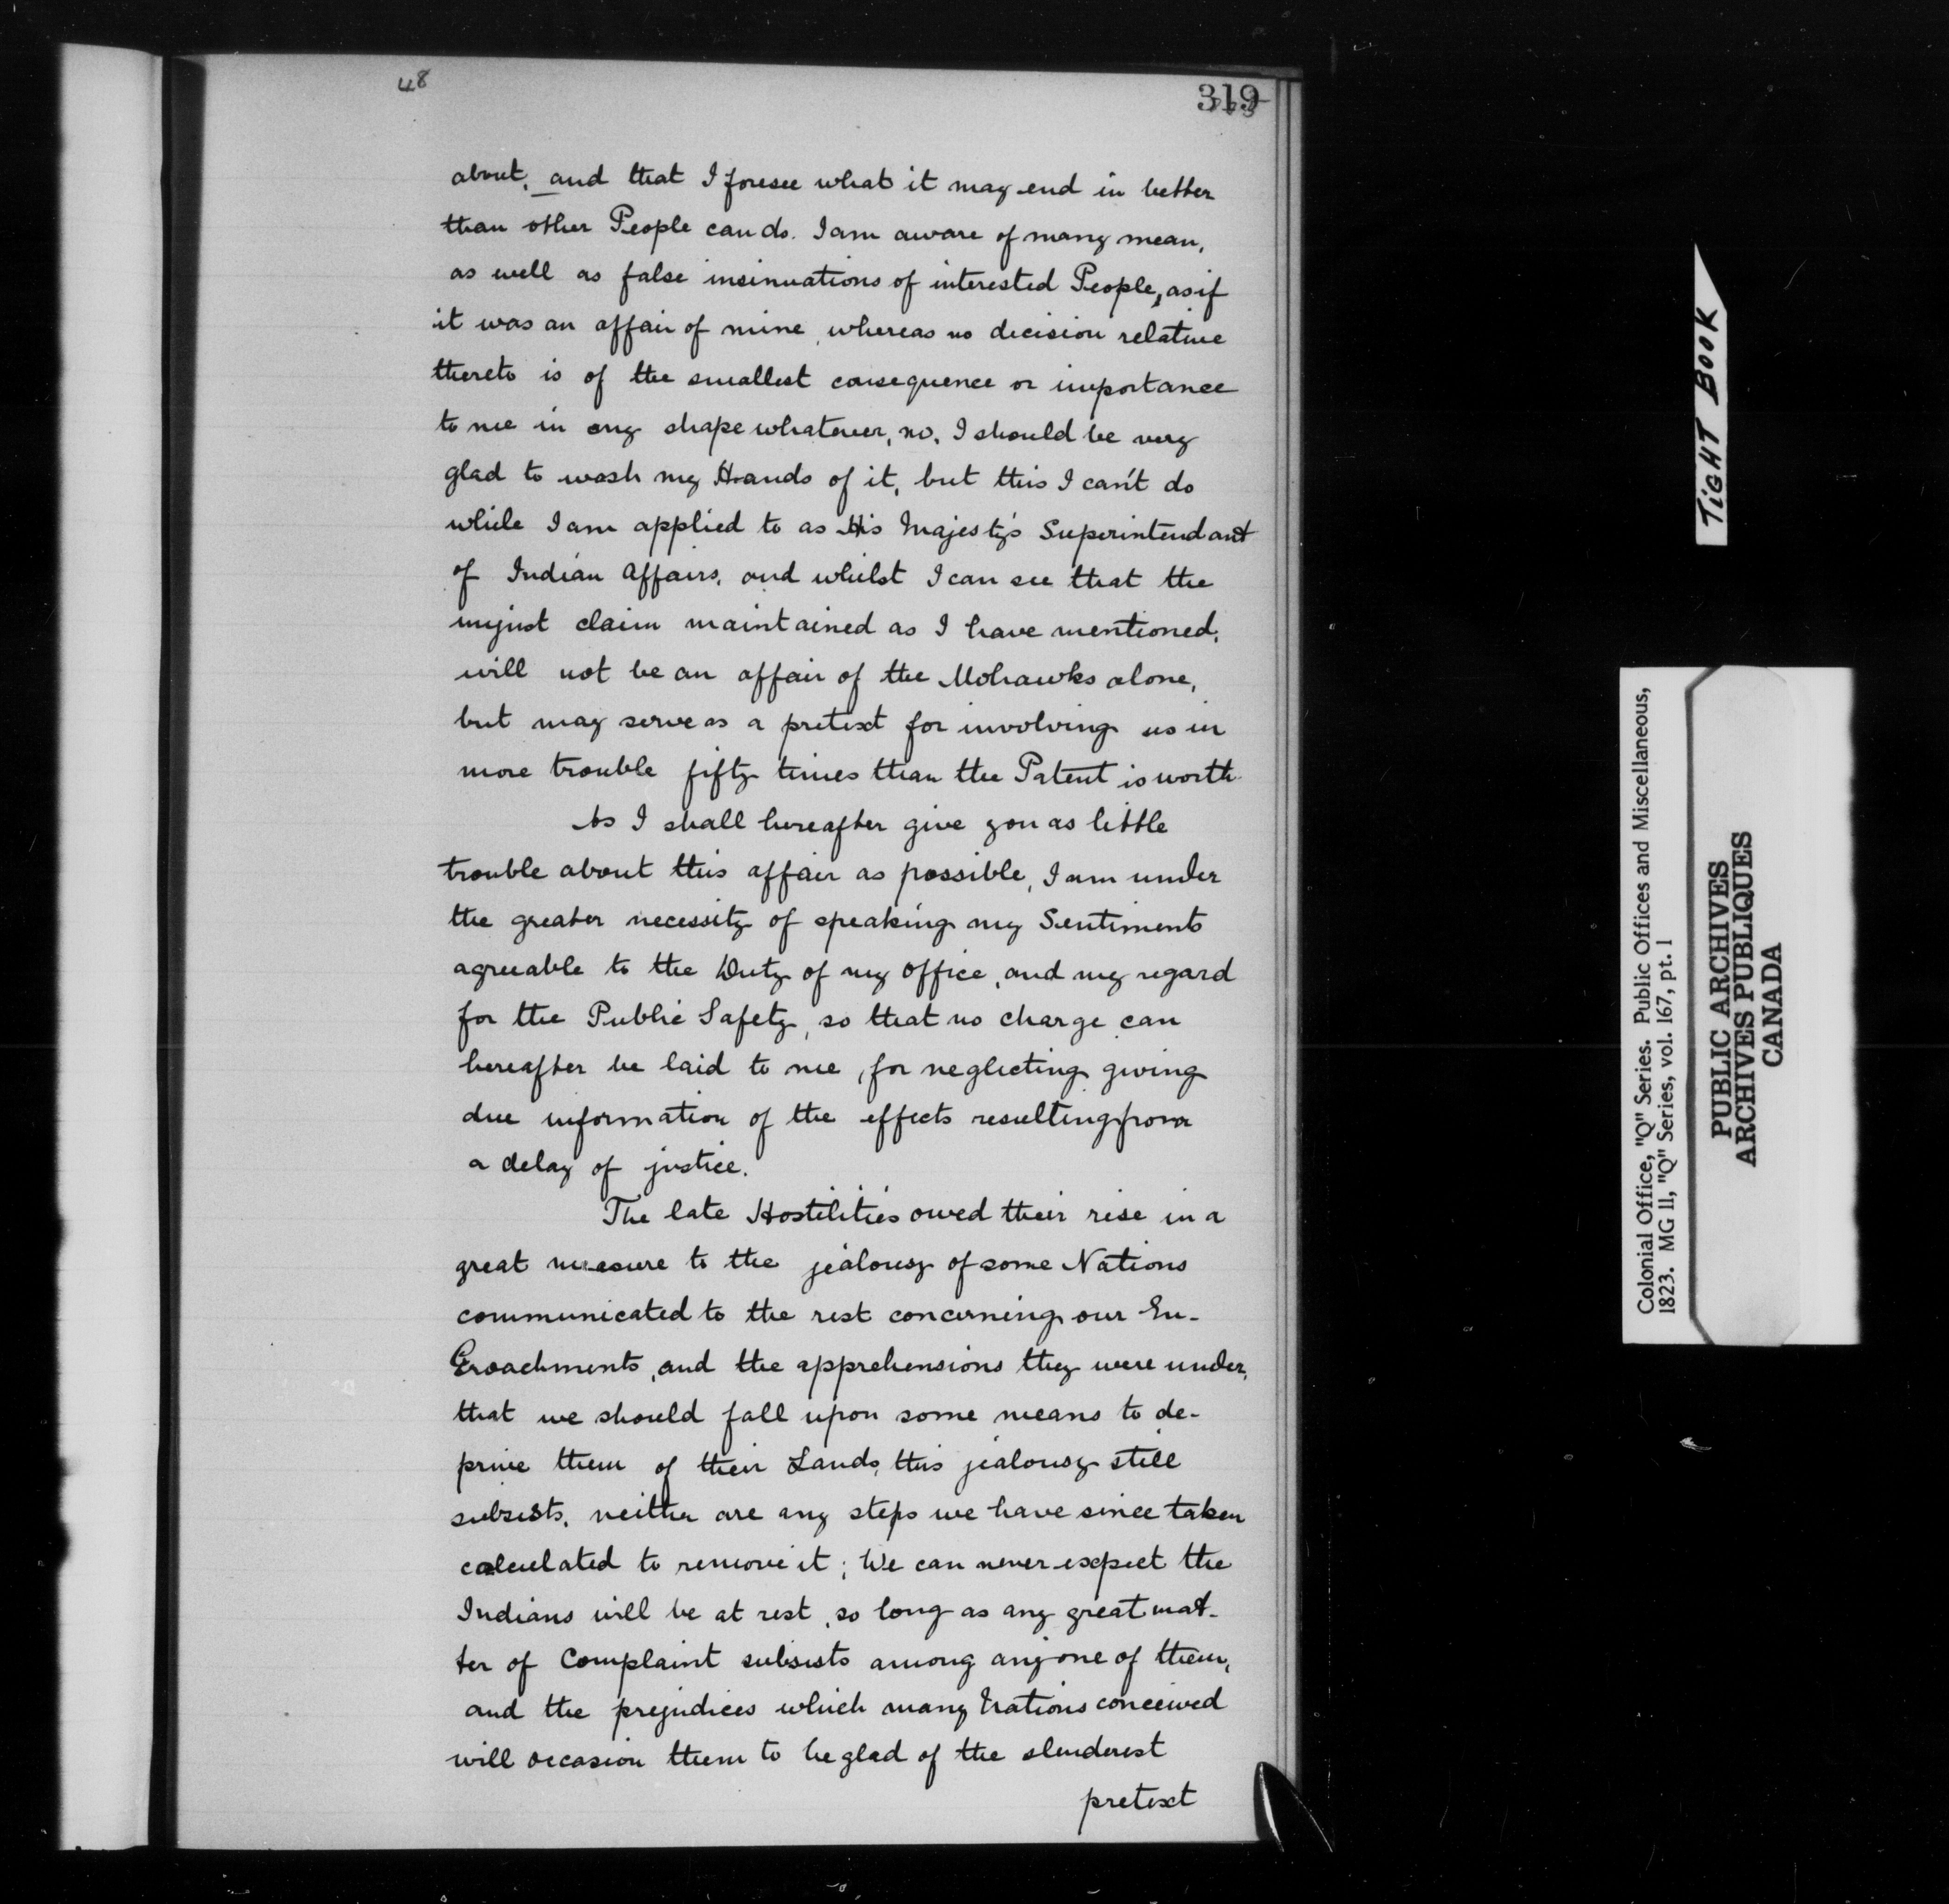 48
319
about, and that I foresee what it may end in better
than other People can do. I am aware of many mean,
as well as false insinuations of interested People, as if
it was an affair of mine, whereas no decision relative
thereto is of the smallest consequence or importance
to me in any shape whatever, no, I should be very
glad to wash my Hands of it, but this I can't do
while I am applied to as His Majesty's Superintendant
of Indian Affairs, and whilst I can see that the
unjust claim maintained as I have mentioned,
will not be an affair of the Mohawks alone,
but may serve as a pretext for involving us in
more trouble fifty times than the Patent is worth.
As I shall hereafter give you as little
trouble about this affair as possible, I am under
the greater necessity of speaking my Sentiments
agreeable to the Duty of my office, and my regard
for the Public Safety, so that no charge can
hereafter be laid to me, for neglecting giving
due information of the effects resulting from
a delay of justice.
The late Hostilities owed their rise in a
great measure to the jealousy of some Nations
communicated to the rest concerning our En-
Croachments, and the apprehensions they were under,
that we should fall upon some means to de-
prive them of their Lands, this jealousy still
subsists, neither are any steps we have since taken
calculated to remove it; We can never expect the
Indians will be at rest, so long as any great mat-
ter of Complaint subsists among any one of them,
and the prejudices which many Nations conceived
will occasion them to be glad of the slenderest
pretext
TIGHT BOOK
Colonial Office, "Q" Series. Public Offices and Miscellaneous,
1823. MG 11, "Q" Series, vol. 167, pt. 1
PUBLIC ARCHIVES
ARCHIVES PUBLIQUES
CANADA